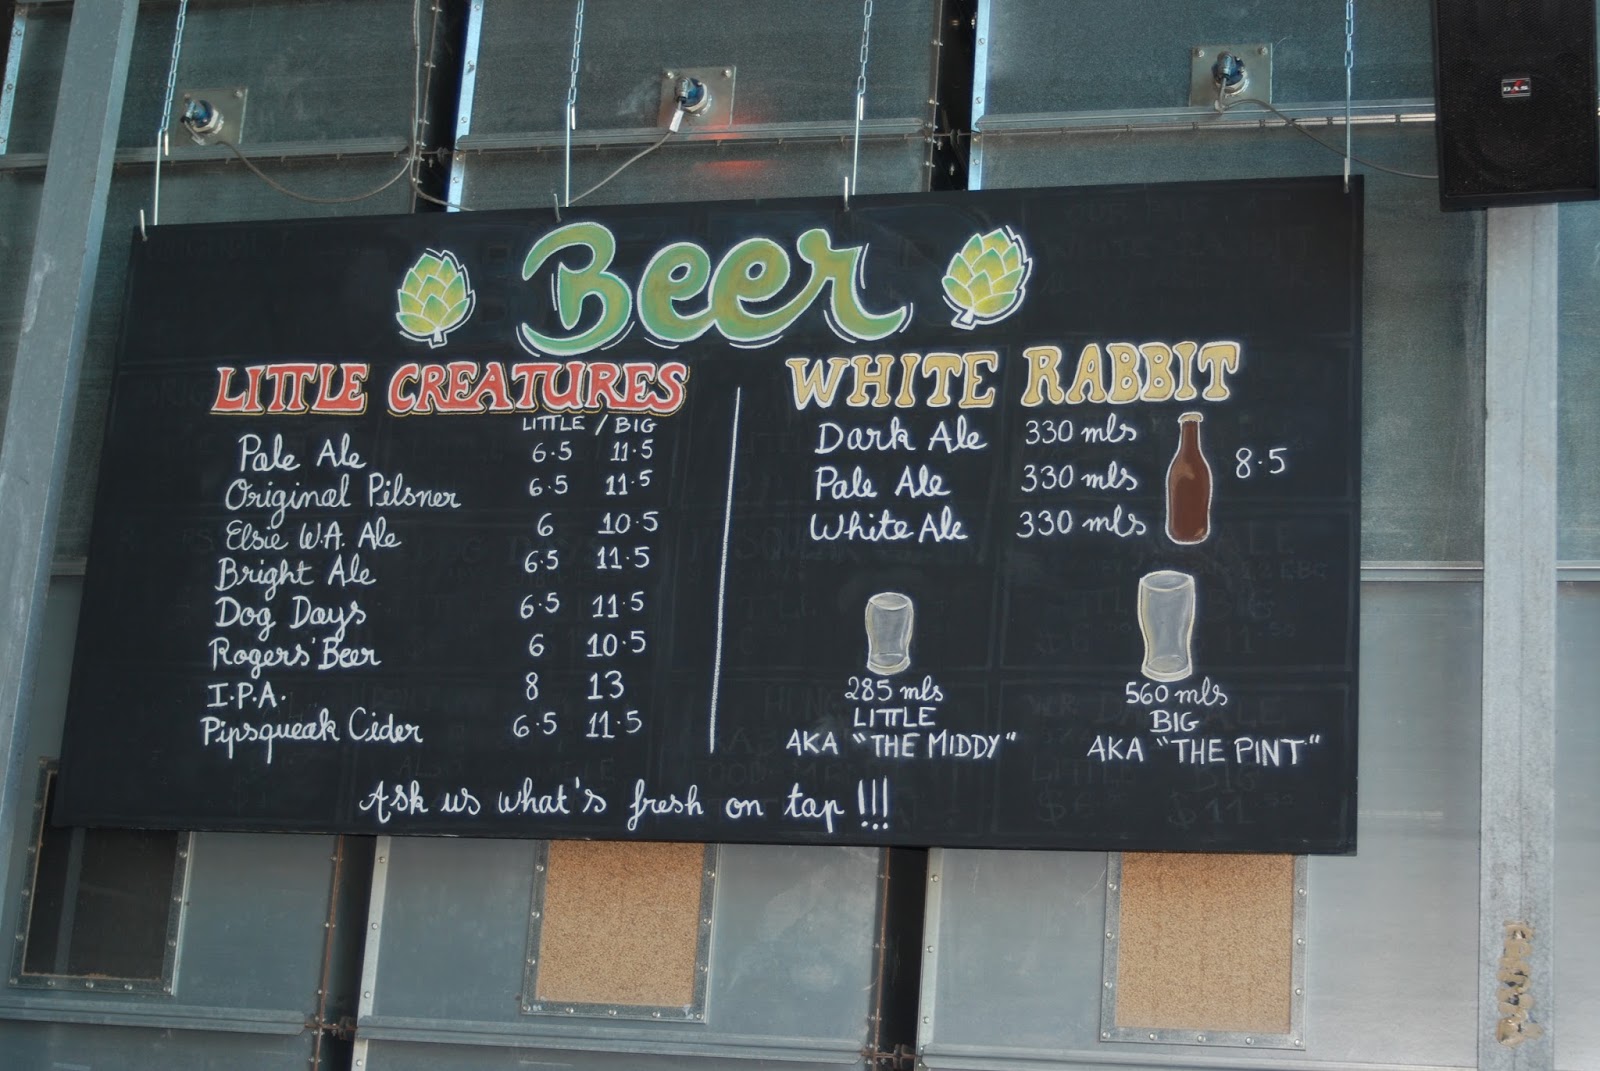 DAS
Beer
LITTLE CREATURES
LITTLE / BIG
Pale Ale 6.5 11.5
Original Pilsner 6.5 11.5
Elsie W.A. Ale 6 10.5
Bright Ale 6.5 11.5
Dog Days 6.5 11.5
Rogers' Beer 6 10.5
I.P.A. 8 13
Pipsqueak Cider 6.5 11.5
WHITE RABBIT
Dark Ale 330 mls
Pale Ale 330 mls 8.5
White Ale 330 mls
285 mls
LITTLE
AKA "THE MIDDY"
560 mls
BIG
AKA "THE PINT"
Ask us what's fresh on tap !!!